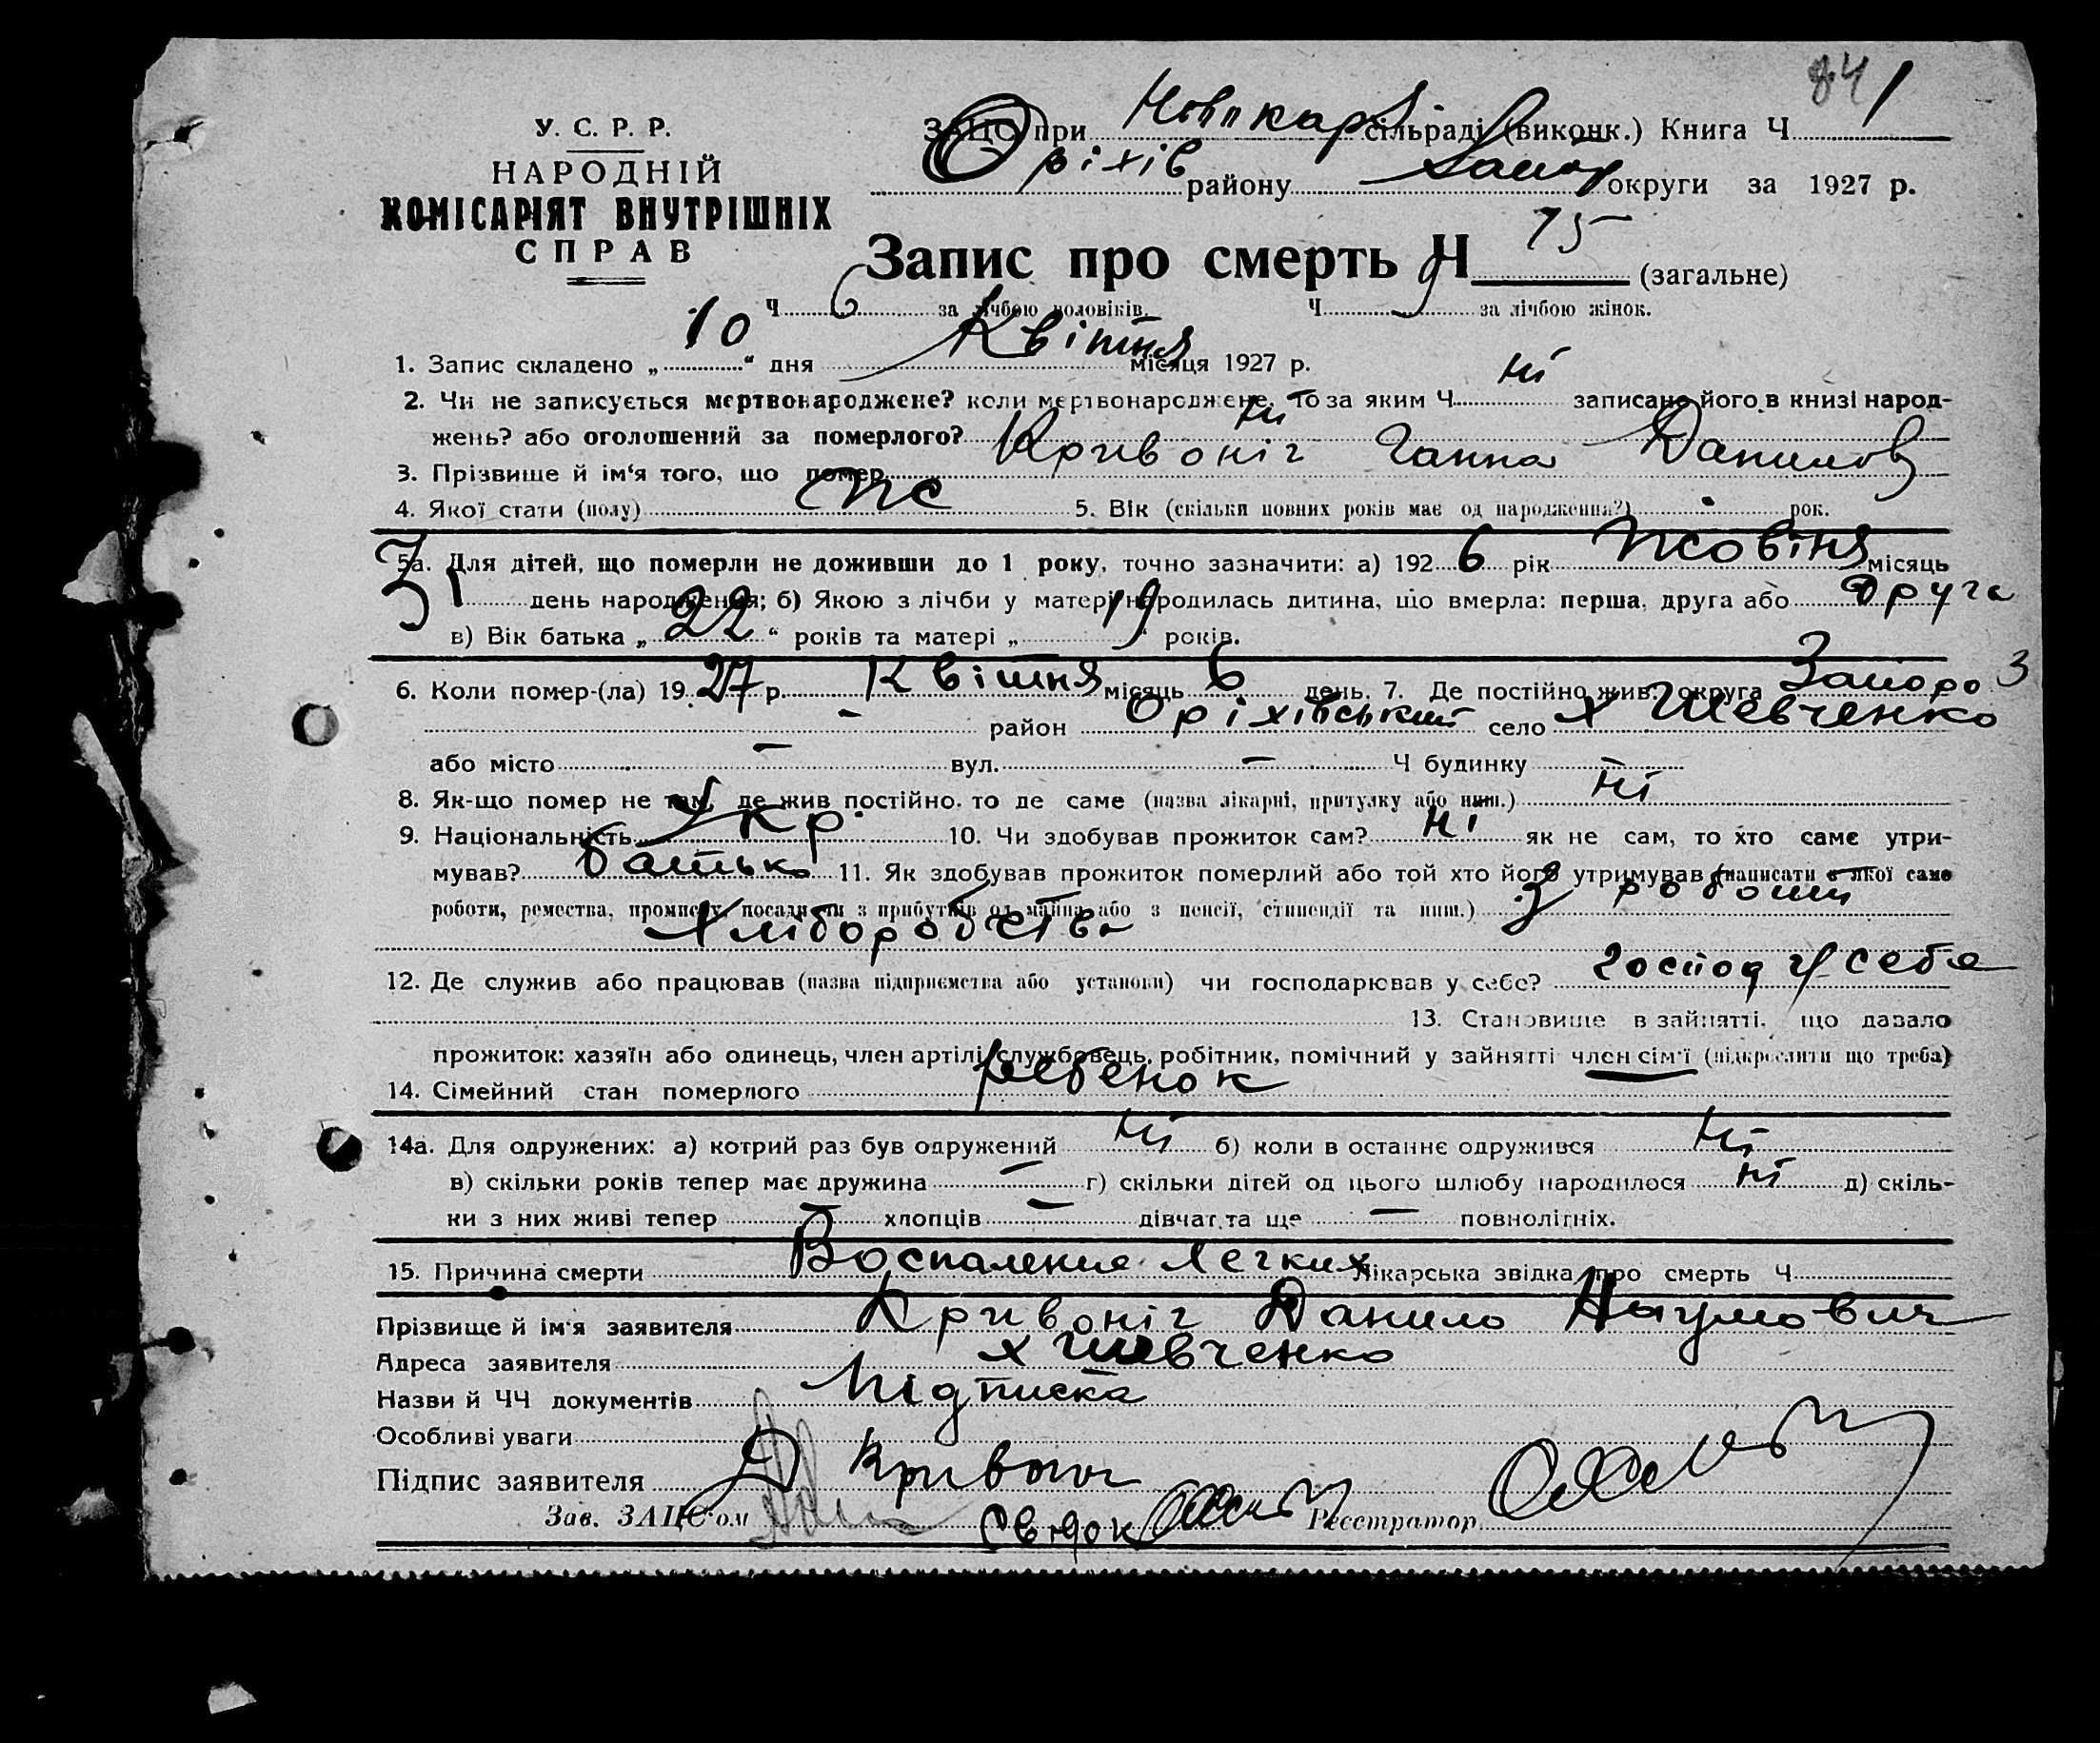 84 1
У. С. Р. Р.
НАРОДНІЙ
КОМІСАРІЯТ ВНУТРІШНІХ
СПРАВ
ЗАЦС при Новокар сільраді (виконк.) Книга Ч
Оріхів району Запор округи за 1927 р.
Запис про смерть Ч 15 (загальне)
Ч 6 за лічбою чоловіків. Ч 9 за лічбою жінок.
1. Запис складено „ 10 “ дня Квітня місяця 1927 р.
2. Чи не записується мертвонароджене? коли мертвонароджене, то за яким Ч ні записано його в книзі народ-
жень? або оголошений за померлого? ні
3. Прізвище й ім'я того, що помер Кривоніг Ганна Данилов
4. Якої стати (полу) ж 5. Вік (скільки повних років має од народження?) рок.
5а. Для дітей, що померли не доживши до 1 року, точно зазначити: а) 192 6 рік Жовтня місяць
31 день народження; б) Якою з лічби у матері народилась дитина, що вмерла: перша, друга або друга
в) Вік батька „ 22 “ років та матері „ 19 “ років.
6. Коли помер-(ла) 19 27 р. Квітня місяць 6 день. 7. Де постійно жив: округа Запороз
- район Оріхівський село х Шевченко
або місто - вул. - Ч будинку -
8. Як-що помер не там, де жив постійно, то де саме (назва лікарні, притулку або инш.) ні
9. Національність Укр. 10. Чи здобував прожиток сам? ні як не сам, то хто саме утри-
мував? батько 11. Як здобував прожиток померлий або той хто його утримував (написати з якої само
роботи, ремества, промислу, посади чи з прибутків од майна або з пенсії, стипендії та инш.) З роботи
Хліборобство
12. Де служив або працював (назва підприємства або установи) чи господарював у себе? господ у себе
13. Становище в зайнятті, що давало
прожиток: хазяїн або одинець, член артілі, службовець, робітник, помічний у зайнятті член сім'ї (підкреслити що треба)
14. Сімейний стан померлого ребенок
14а. Для одружених: а) котрий раз був одружений ні б) коли в останнє одружився ні
в) скільки років тепер має дружина - г) скільки дітей од цього шлюбу народилося ні д) скіль-
ки з них живі тепер - хлопців - дівчат та ще - повнолітніх.
15. Причина смерти Воспаление Легких Лікарська звідка про смерть Ч
Прізвище й ім'я заявителя Кривоніг Данило Наумович
Адреса заявителя х Шевченко
Назви й ЧЧ документів Підписка
Особливі уваги
Підпис заявителя Д Кривоніг
Зав. ЗАЦС'ом Свідок Реєстратор